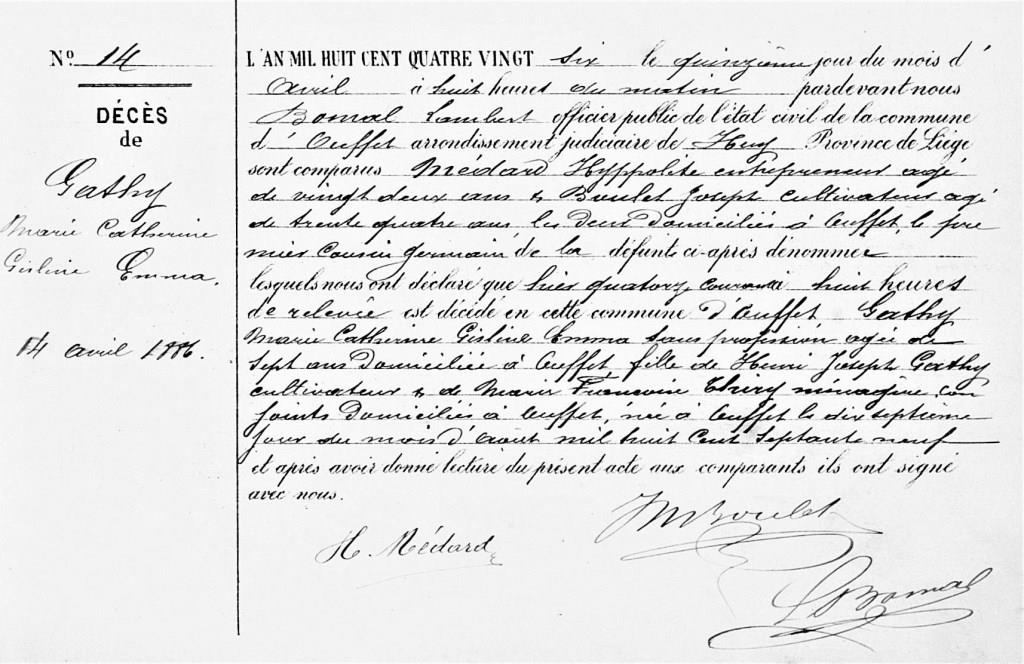 N° 14
DÉCÈS
de
Gathy
Marie Catherine
Gisline Emma.
14 avril 1886.
L'AN MIL HUIT CENT QUATRE VINGT six le quinzième jour du mois d'
Avril à huit heures du matin pardevant nous
Bomal Lambert officier public de l'état civil de la commune
d'Ouffet arrondissement judiciaire de Huy Province de Liége
sont comparus Médard Hyppolite entrepreneur agé
de vingt deux ans & Boulet Joseph cultivateur agé
de trente quatre ans les deux domiciliés à Ouffet, le pre
mier cousin germain de la défunte ci-après dénommée
lesquels nous ont déclaré que hier quatorze courant à huit heures
de relevée est décédé en cette commune d'Ouffet Gathy
Marie Catherine Gisline Emma sans profession agée de
sept ans domiciliée à Ouffet, fille de Henri Joseph Gathy
cultivateur & de Marie Françoise Thiry ménagère, con
joints domiciliés à Ouffet, née à Ouffet le dix septième
jour du mois d'août mil huit cent septante neuf
et après avoir donné lecture du présent acte aux comparants ils ont signé
avec nous.
Boulet
H. Médard
L Bomal